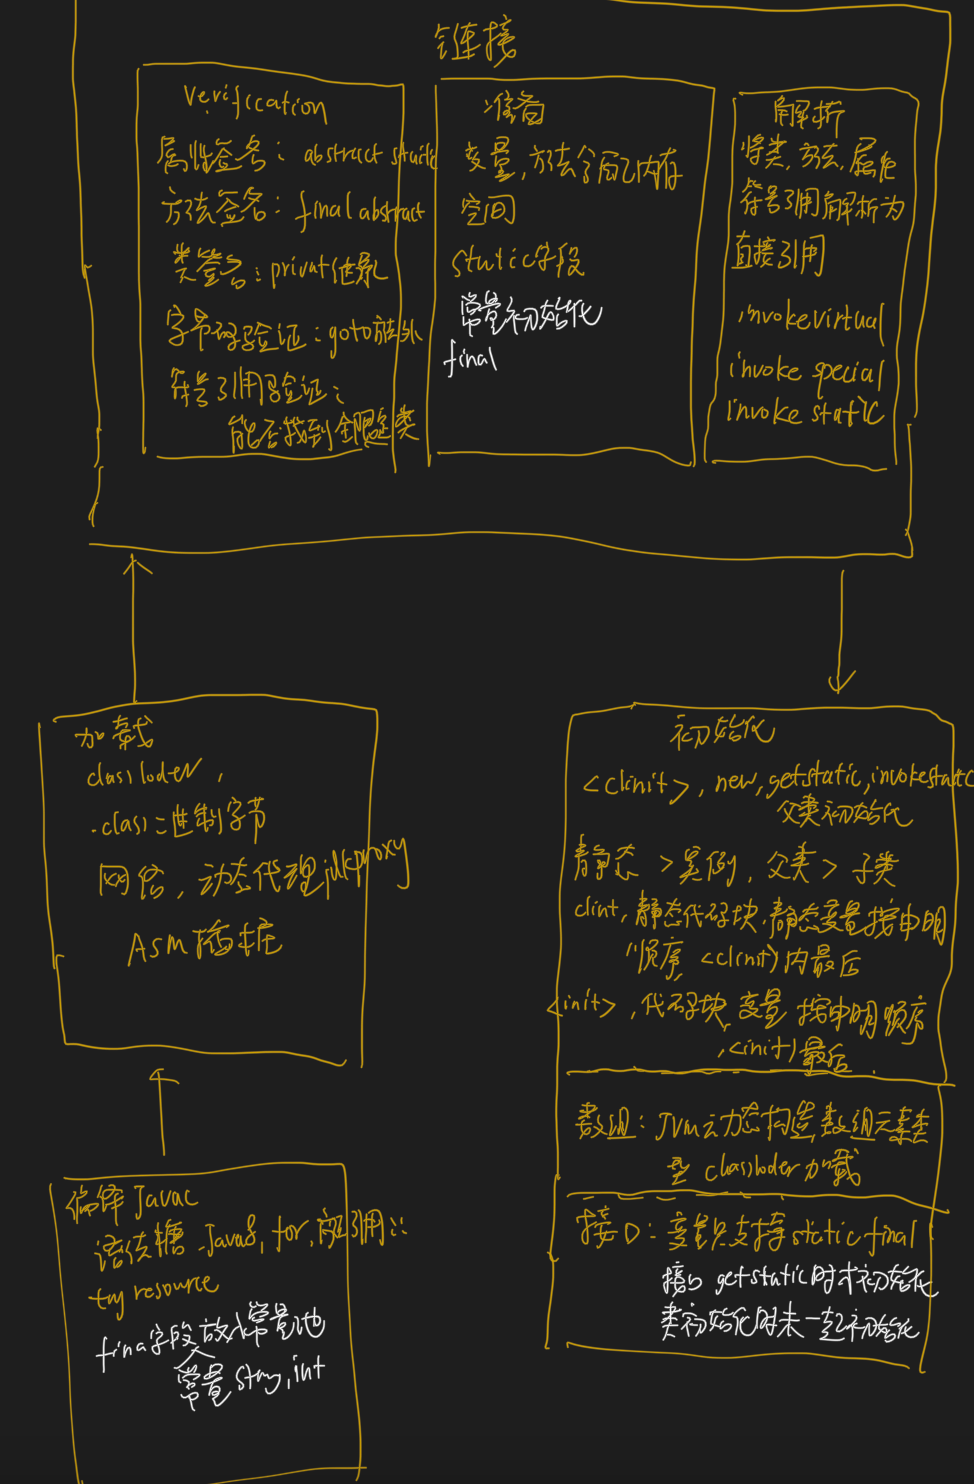 链接
verification
属性签名：abstract static
方法签名：final abstract
类签名：privat继承
字节码验证：goto方法外
符号引用验证：
能否找到全限定类
准备
变量，方法分配内存
空间
static字段
常量初始化
final
解析
将类，方法，属性
符号引用解析为
直接引用
invokevirtual
invoke special
invoke static
加载
classloder，
.class二进制字节
网络，动态代理jdkproxy
Asm插桩
编译 Javac
语法糖 Java8, for, 方法引用::
try resource
fina字段放入常量池
常量 string, int
初始化
<clinit>, new, getstatic, invokestatic
父类初始化
静态 > 实例，父类 > 子类
clint, 静态代码块, 静态变量按申明
顺序, <clinit>内最后
<init>, 代码块, 变量 按申明顺序
, <init>最后
数组：JVM动态构造, 数组元素类
型 classloder加载
接口：变量只支持static final
接口 getstatic时才初始化
类初始化时未一起初始化